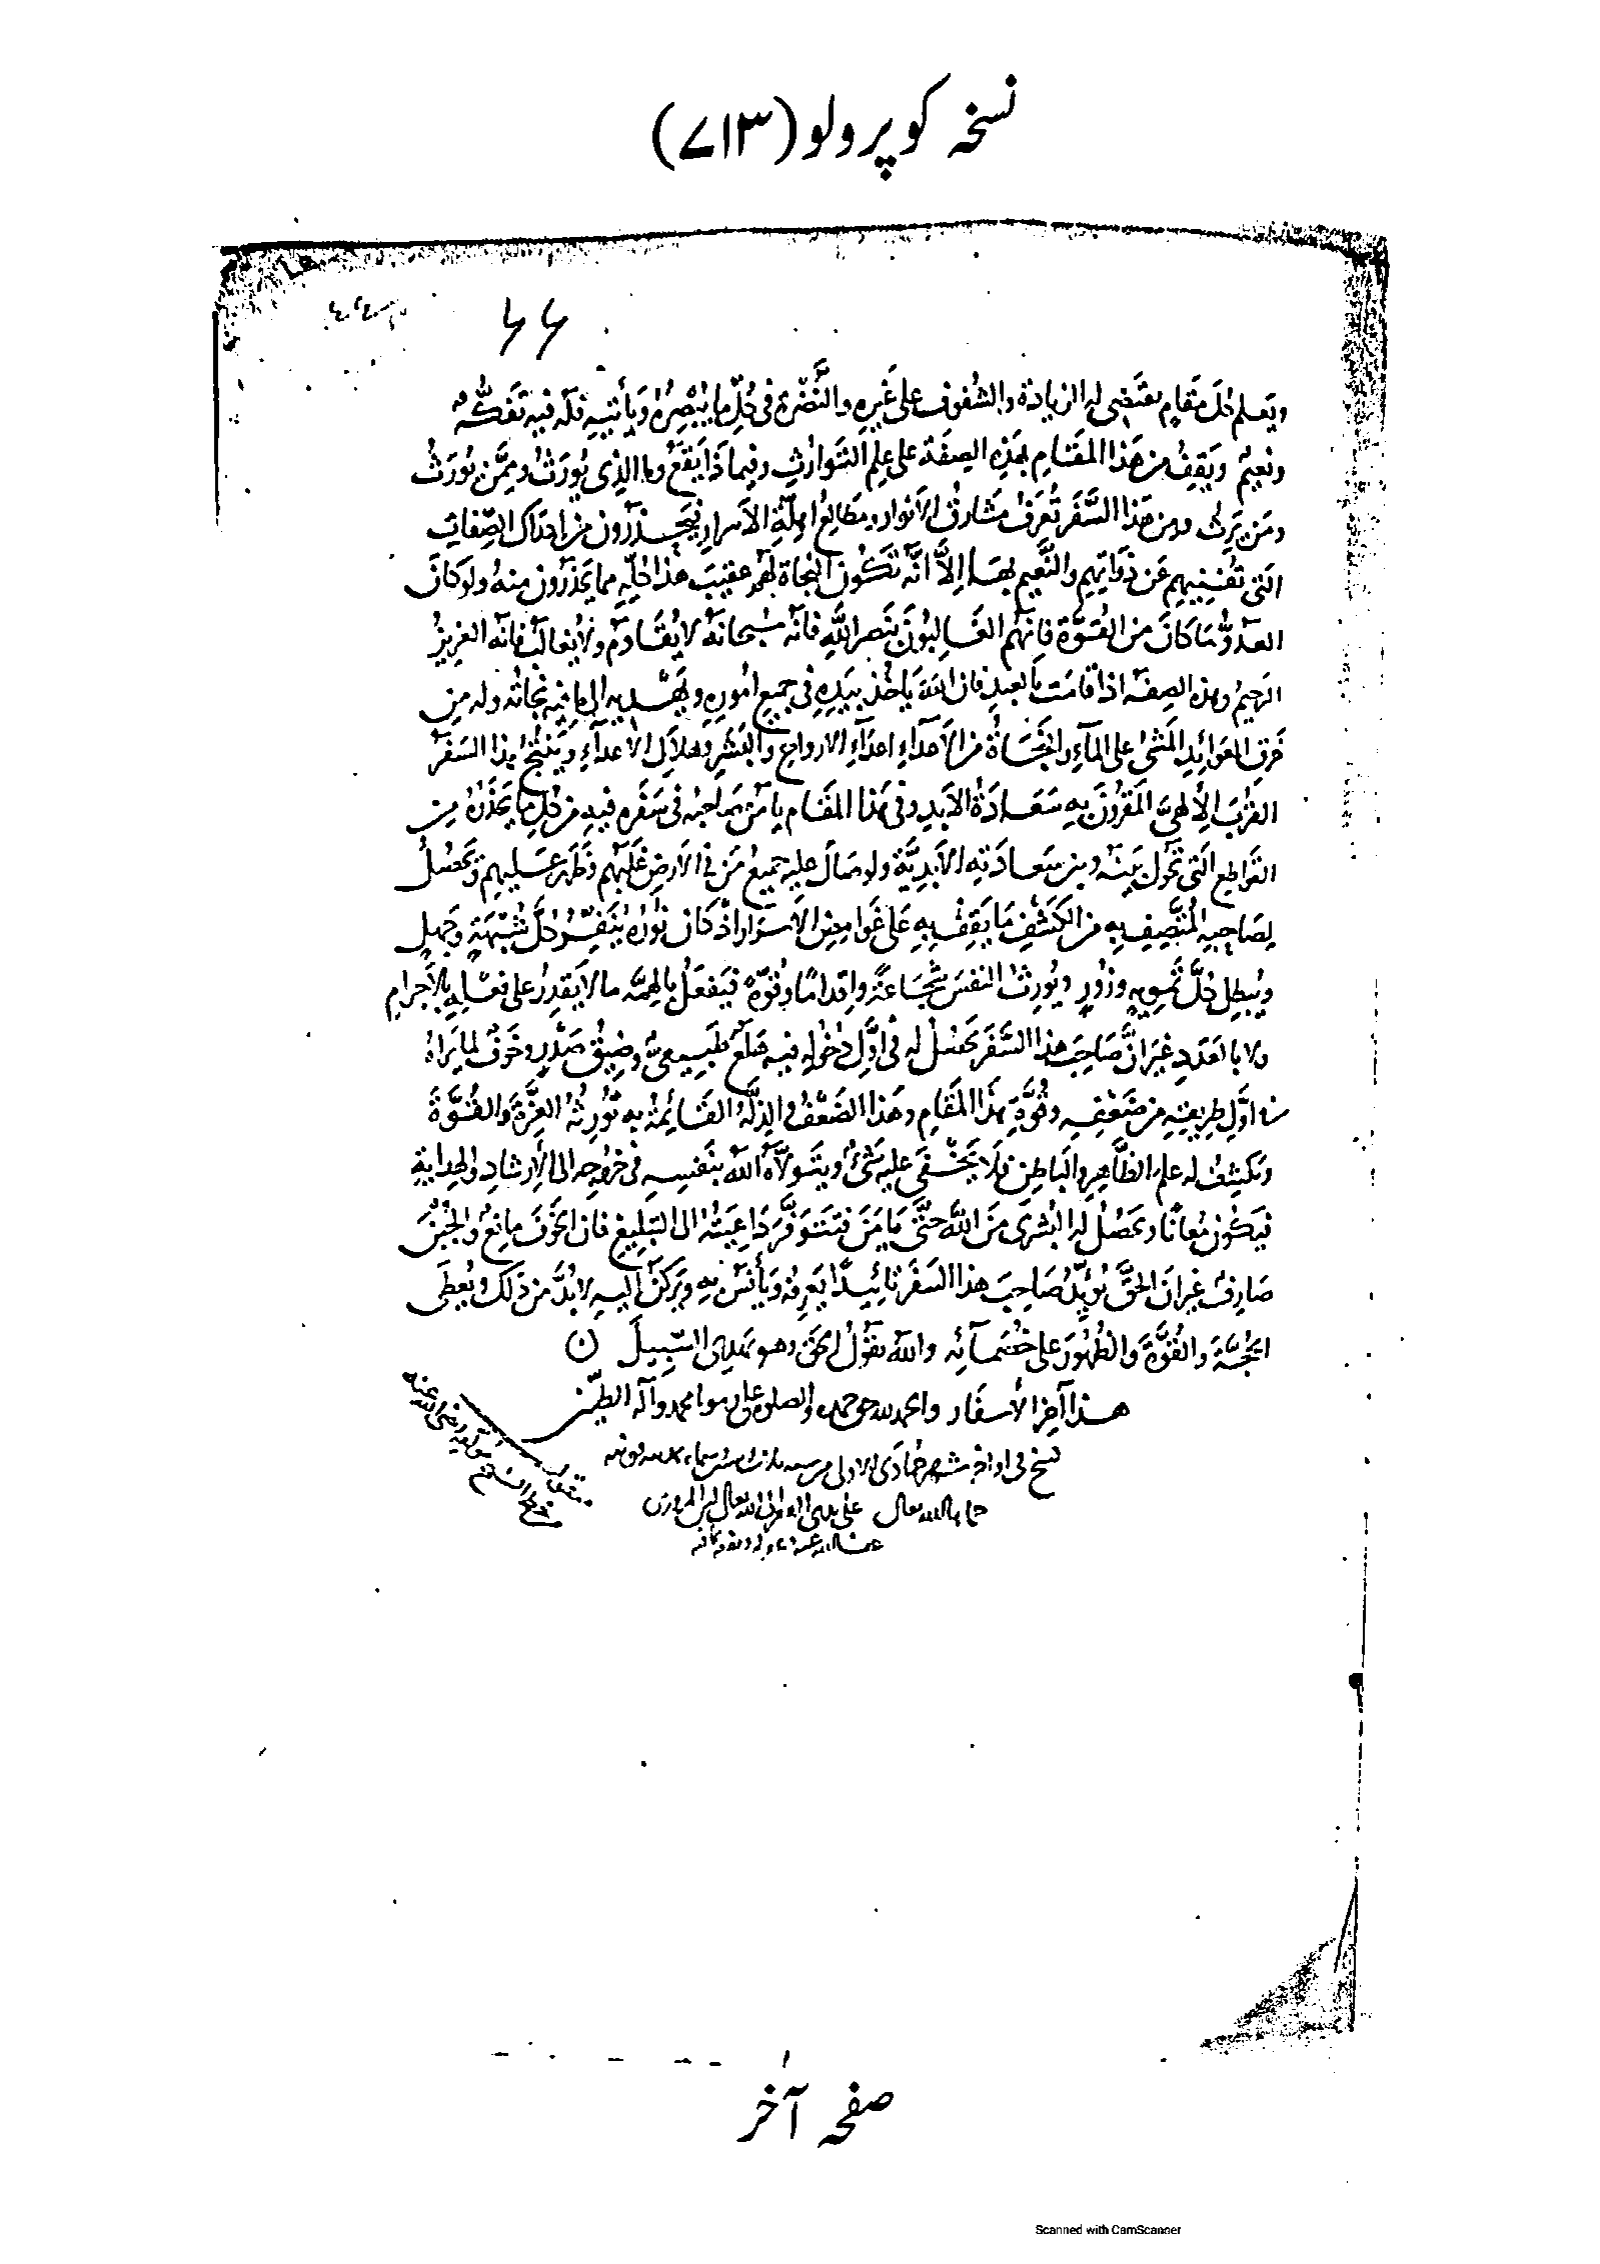 نسخہ کوپرولو (۷۱۳)
۷۶
ويَعلم كلَّ مقام يقتضى له الزيادة والشفوف على غيره والنضرة فى كلّ ما يبصره ويأتيه فله فيه تفكّه
ونعيم ويقف من هذا المقام بهذه الصفة على علم التوارث وفيما ذا يقع وما الذى يورث وممّن يورث
ومن يرث ومن هذا السَّفَر تُعرف مشارق الأنوار ومطالع اهلّة الأسرار فيحذرون من ادراك الصّفات
التى تفنيهم عن ذواتهم والنّعيم بها إلاّ انّه تكون النجاة لهم عقيب هذا كلّه مما يحذرون منه ولو كان
العدوّ ما كان من القوّة فإنهم الغالبون بنصر الله فانّه سبحانه لا يُقادم ولا يُغالب فانّه العزيز
الرحيم وهذه الصفة اذا قامت بالعبد فان الله يأخذ بيده فى جميع اموره ويهديه الى ما فيه نجاته وله من
خرق العوائد المشى على الماء والنجاة من الأعداء اعداء الارواح والبشر وهلاك الأعداء وينتج هذا السفر
القرب الإلهىّ المقرون به سعادة الأبد وفى هذا المقام يأمن صاحبه فى سفره فيه من كل ما يحذره من
القواطع التى تحول بينه وبين سعادته الأبديّة ولو صال عليه جميع من فى الارض غلبهم وظهر عليهم ويحصل
لصاحبه المتّصف به من الكشف ما يقف به على غوامض الأسرار اذ كان نوره ينفّر كلّ شبهة وجهل
ويبطل كلّ تمويه وزور ويورث النفس شجاعة واقدامًا وقوّة فيفعل بالهمّة ما لا يقدر على فعله بالأجرام
ولا بالعدد غير انّ صاحب هذا السَّفَر يحصل له فى اوّل دخوله فيه هلع طبيعىّ وضيق صدر وخوف لما يراه
اوّل طريقه من ضعفه وقوّة هذا المقام وهذا الضعف والذلّة القائمة به تورثه العزّة والقوّة
ويكشف له علم الظّاهر والباطن فلا يخفى عليه شىء ويتولاّه الله بنفسه فى خروجه الى الإرشاد والهداية
فيكون معانًا ويحصل له البشرى من الله حتّى يأمن فتتوفّر داعيته الى التبليغ فان الخوف مانع والجبن
صارف غير ان الحقّ يؤيّد صاحب هذا السفر تأييدًا يعرفه ويأنس به ويركن اليه لا بدّ من ذلك ويعطى
الحجّة والقوّة والظهور على خصمائه والله يقول الحق وهو يهدى السّبيل
هذا آخر الأسفار والحمد لله حق حمده والصلوه على محمد وآله الطيّبين
نسخ فى اواخر شهر جمادى الاولى
صفحہ آخر
Scanned with CamScanner